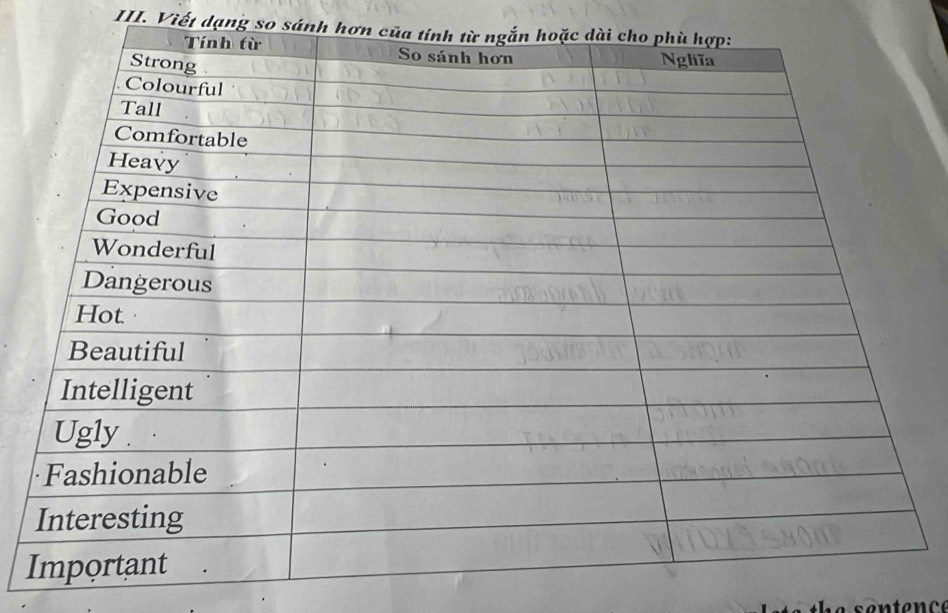 III. Viết dạng so sánh hơn của tính từ ngắn hoặc dài cho phù hợp:
Tính từ So sánh hơn Nghĩa
Strong
Colourful
Tall
Comfortable
Heavy
Expensive
Good
Wonderful
Dangerous
Hot
Beautiful
Intelligent
Ugly
Fashionable
Interesting
Important
the sentence